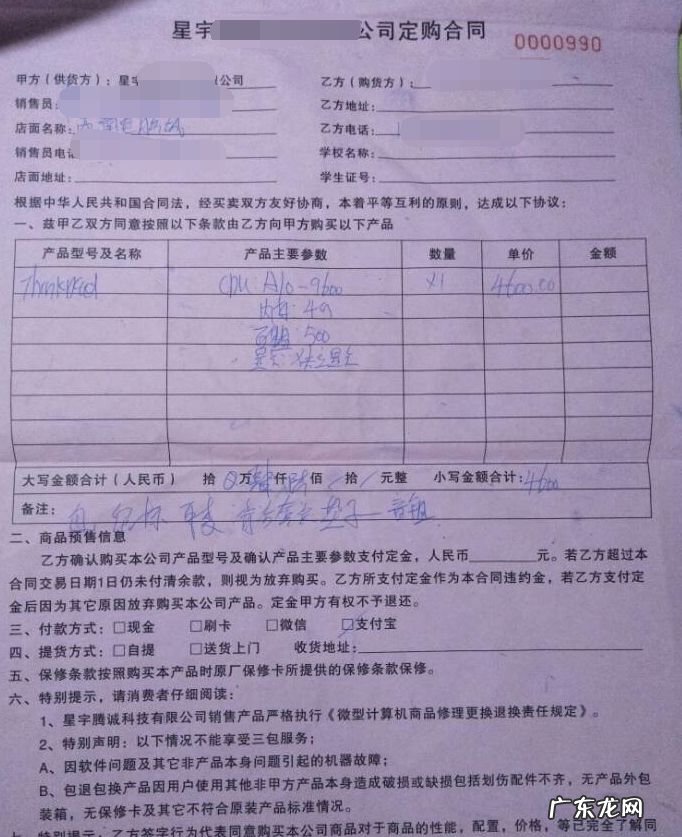 星宇 公司定购合同
0000990
甲方（供货方）：星宇 公司
乙方（购货方）：
销售员：
乙方地址：
店面名称：
乙方电话：
销售员电话
学校名称：
店面地址：
学生证号：
根据中华人民共和国合同法，经买卖双方友好协商，本着平等互利的原则，达成以下协议：
一、兹甲乙双方同意按照以下条款由乙方向甲方购买以下产品
产品型号及名称 产品主要参数 数量 单价 金额
Thinkpad CPU：A10-9600 x1 4600.00
内存：4G
硬盘：500
显卡：独立显卡
大写金额合计（人民币） 拾 万 肆 仟 陆 佰 拾 元整 小写金额合计：4600
备注： 包 鼠标
二、商品预售信息
乙方确认购买本公司产品型号及确认产品主要参数支付定金，人民币 元。若乙方超过本
合同交易日期1日仍未付清余款，则视为放弃购买。乙方所支付定金作为本合同违约金，若乙方支付定
金后因为其它原因放弃购买本公司产品。定金甲方有权不予退还。
三、付款方式：□现金 □刷卡 □微信 □支付宝
四、提货方式：□自提 □送货上门 收货地址：
五、保修条款按照购买本产品时原厂保修卡所提供的保修条款保修。
六、特别提示，请消费者仔细阅读：
1、星宇腾诚科技有限公司销售产品严格执行《微型计算机商品修理更换退换责任规定》。
2、特别声明：以下情况不能享受三包服务；
A、因软件问题及其它非产品本身问题引起的机器故障；
B、包退包换产品因用户使用其他非甲方产品本身造成破损或缺损包括划伤配件不齐，无产品外包
装箱，无保修卡及其它不符合原装产品标准情况。
七、特别提示：乙方签字行为代表同意购买本公司商品对于商品的性能，配置，价格，等已完全了解同
广东龙网